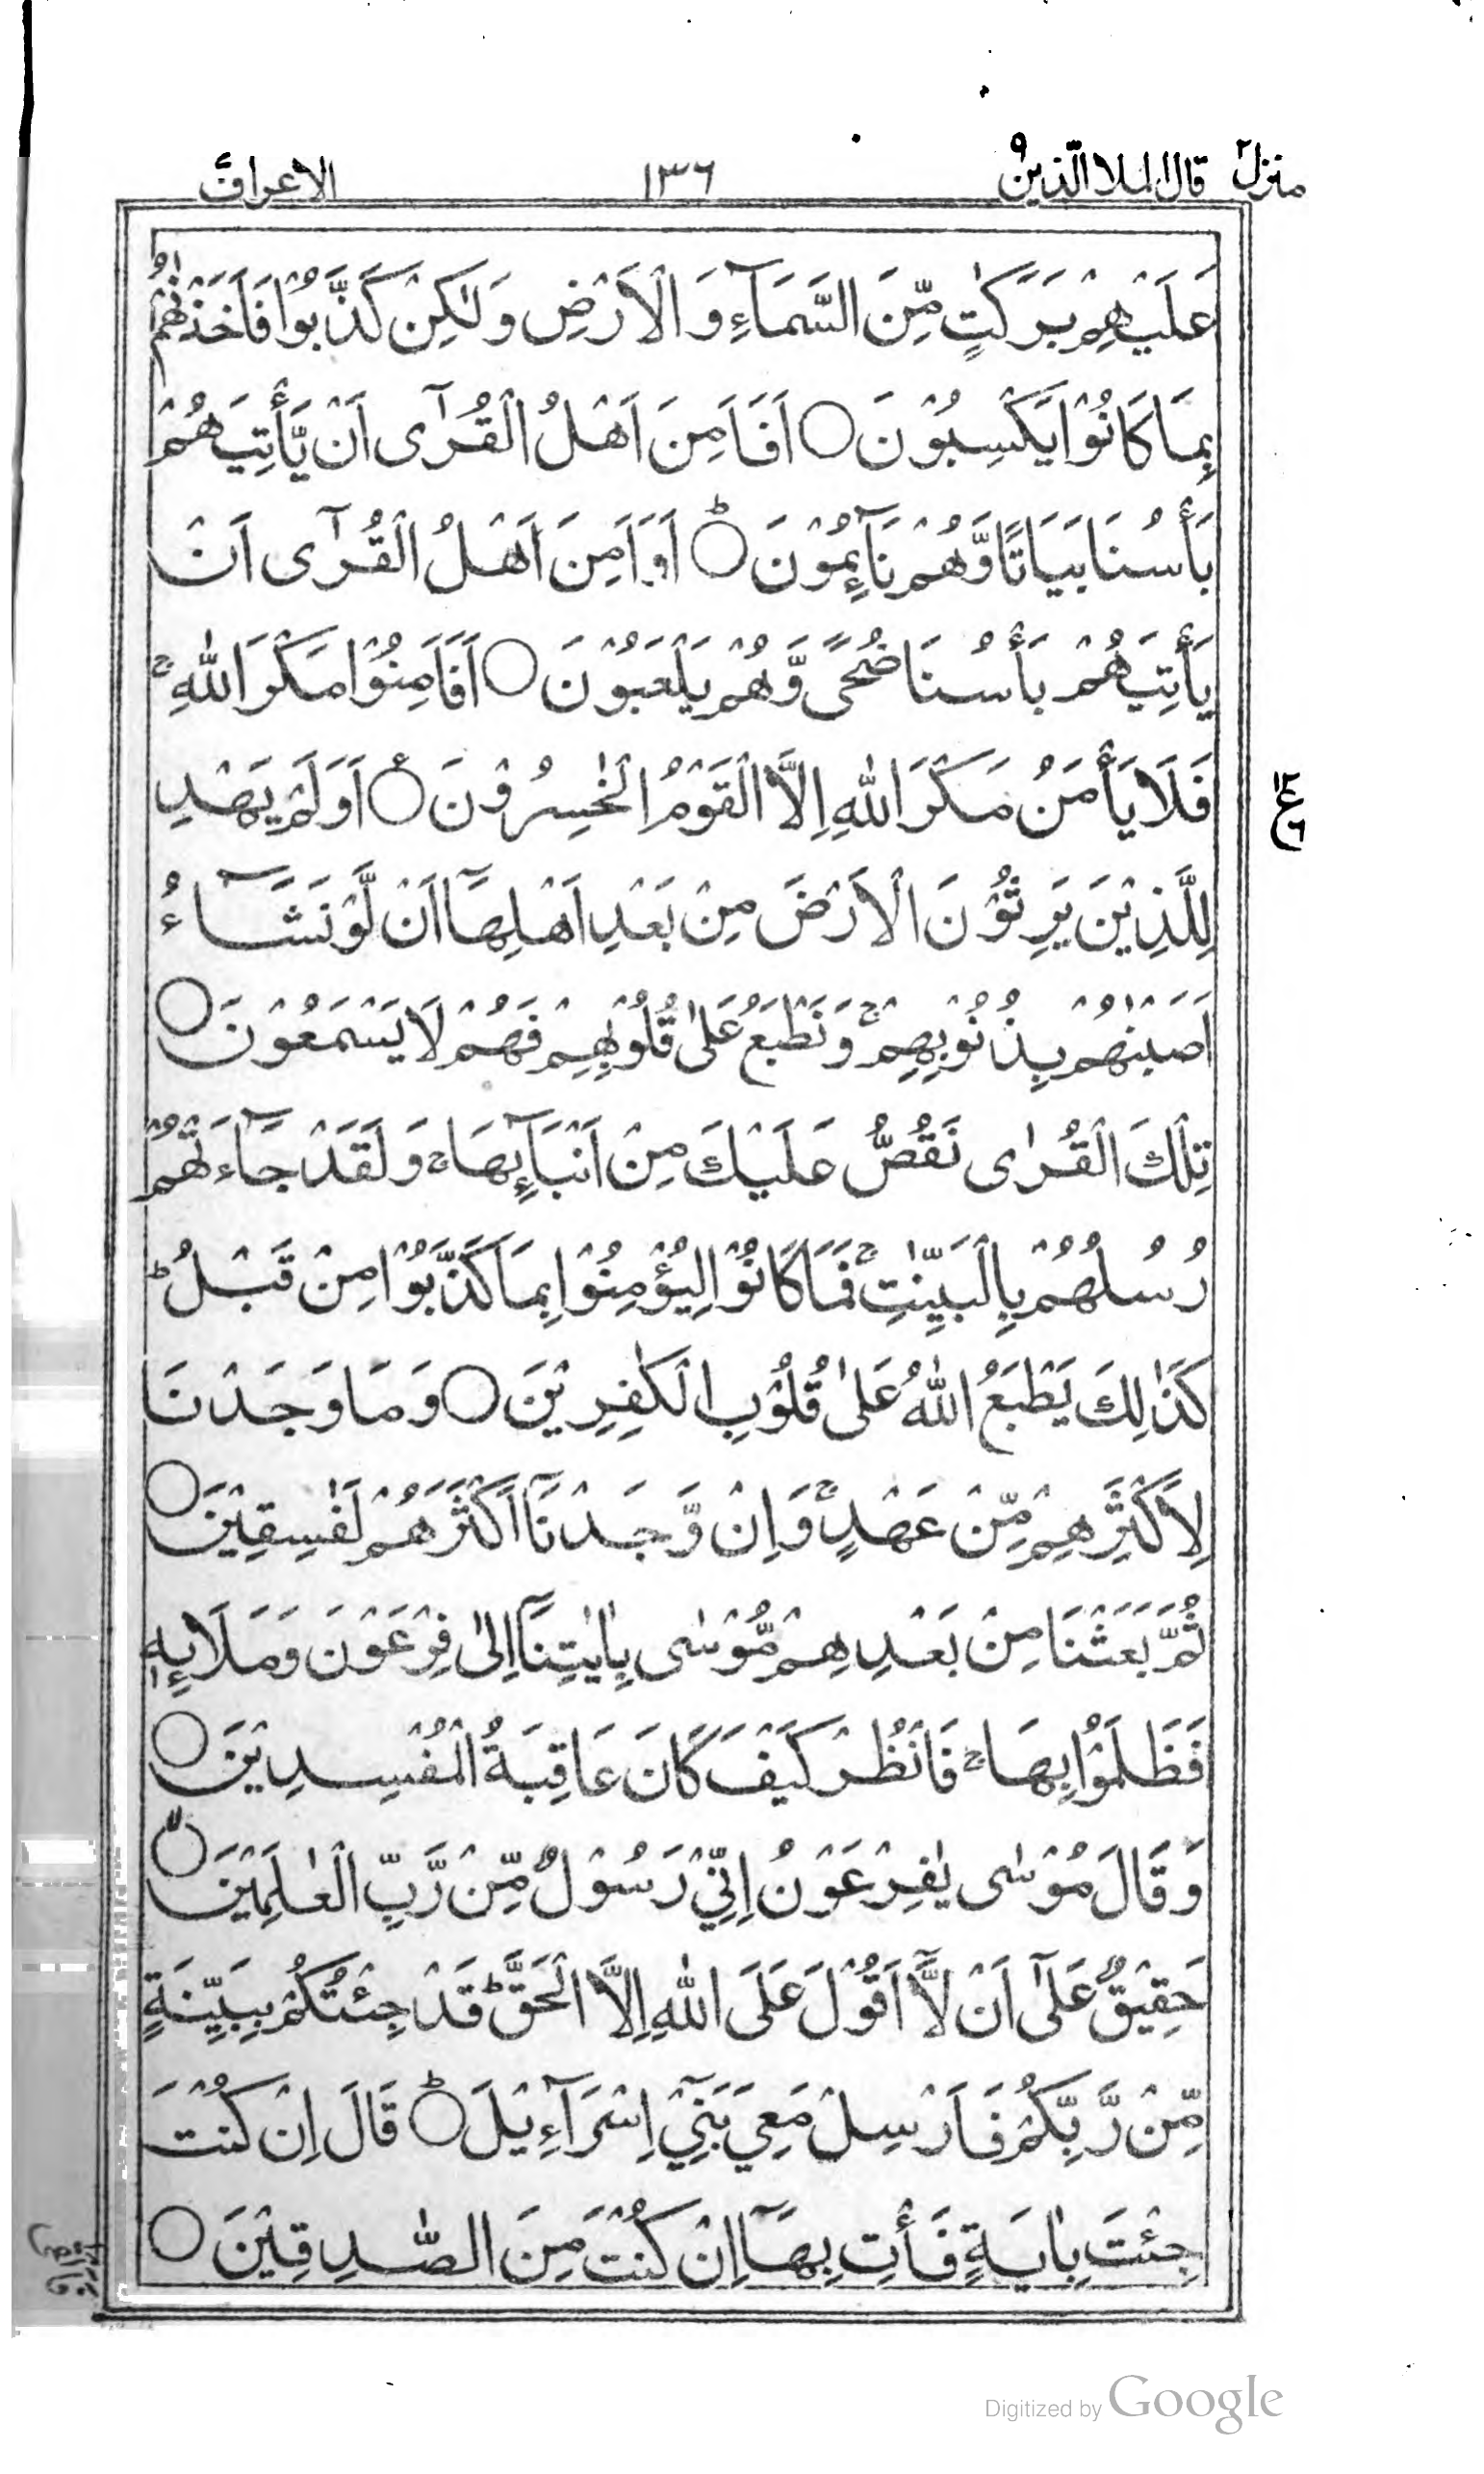 منزل٢ قال الملا الّذين٩ ١٣٦ الاعراف٧
عَلَيْهِمْ بَرَكٰتٍ مِّنَ السَّمَآءِ وَ الْاَرْضِ وَلٰكِنْ كَذَّبُوْا فَاَخَذْنٰهُمْ
بِمَا كَانُوْا يَكْسِبُوْنَ۝ اَفَاَمِنَ اَهْلُ الْقُرٰٓى اَنْ يَّاْتِيَهُمْ
بَاْسُنَا بَيَاتًا وَّهُمْ نَآئِمُوْنَ۝ؕ اَوَاَمِنَ اَهْلُ الْقُرٰٓى اَنْ
يَّاْتِيَهُمْ بَاْسُنَا ضُحًى وَّهُمْ يَلْعَبُوْنَ۝ اَفَاَمِنُوْا مَكْرَ اللّٰهِ ۚ
فَلَا يَاْمَنُ مَكْرَ اللّٰهِ اِلَّا الْقَوْمُ الْخٰسِرُوْنَ۝ع اَوَلَمْ يَهْدِ
ع ١٢ ٦
لِلَّذِيْنَ يَرِثُوْنَ الْاَرْضَ مِنْ بَعْدِ اَهْلِهَآ اَنْ لَّوْ نَشَآءُ
اَصَبْنٰهُمْ بِذُنُوْبِهِمْ ۚ وَنَطْبَعُ عَلٰى قُلُوْبِهِمْ فَهُمْ لَا يَسْمَعُوْنَ۝
تِلْكَ الْقُرٰى نَقُصُّ عَلَيْكَ مِنْ اَنْۢبَآئِهَا ۚ وَلَقَدْ جَآءَتْهُمْ
رُسُلُهُمْ بِالْبَيِّنٰتِ ۚ فَمَا كَانُوْا لِيُؤْمِنُوْا بِمَا كَذَّبُوْا مِنْ قَبْلُ ؕ
كَذٰلِكَ يَطْبَعُ اللّٰهُ عَلٰى قُلُوْبِ الْكٰفِرِيْنَ۝ وَمَا وَجَدْنَا
لِاَكْثَرِهِمْ مِّنْ عَهْدٍ ۚ وَاِنْ وَّجَدْنَآ اَكْثَرَهُمْ لَفٰسِقِيْنَ۝
ثُمَّ بَعَثْنَا مِنْ بَعْدِهِمْ مُّوْسٰى بِاٰيٰتِنَآ اِلٰى فِرْعَوْنَ وَمَلَا۟ئِهٖ
فَظَلَمُوْا بِهَا ۚ فَانْظُرْ كَيْفَ كَانَ عَاقِبَةُ الْمُفْسِدِيْنَ۝
وَقَالَ مُوْسٰى يٰفِرْعَوْنُ اِنِّيْ رَسُوْلٌ مِّنْ رَّبِّ الْعٰلَمِيْنَ۝ۙ
حَقِيْقٌ عَلٰٓى اَنْ لَّآ اَقُوْلَ عَلَى اللّٰهِ اِلَّا الْحَقَّ ؕ قَدْ جِئْتُكُمْ بِبَيِّنَةٍ
مِّنْ رَّبِّكُمْ فَاَرْسِلْ مَعِيَ بَنِيْٓ اِسْرَآءِيْلَ۝ؕ قَالَ اِنْ كُنْتَ
جِئْتَ بِاٰيَةٍ فَاْتِ بِهَآ اِنْ كُنْتَ مِنَ الصّٰدِقِيْنَ۝
Digitized by Google